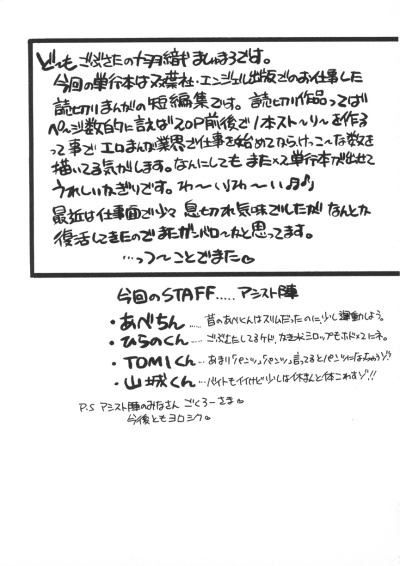 ど〜も ごぶさたの十羽織ましゅまろです。
今回の単行本は双葉社・エンジェル出版でのお仕事した
読切りまんがの短編集です。読切り作品ってば
ページ数的に言えば20P前後で1本スト〜リ〜を作る
って事で エロまんが業界で仕事を始めてからけっこ〜な数を
描いてる気がします。なんにしても また××単行本が出せて
うれしいかぎりです。わ〜いわ〜い♬♪
最近は仕事面で少々 息切れ気味でしたが なんとか
復活してきたのでまたガンバロ〜かと思ってます。
…っつ〜ことでまた♡
今回のSTAFF..... アシスト陣
・あべちん ... 昔のあべくんはスリムだったのに、少し運動しよう。
・ひらのくん ... ごぶさたしてるケド、シロップもホドホドにネ。
・TOMIくん ... あまり「パンツ」「パンツ」言ってるとパンツになっちゃうゾ!
・山城くん ... バイトもイイけど少しは休まんと体こわすゾ!!
P.S アシスト陣のみなさん ごくろーさま♡
今後ともヨロシク♡